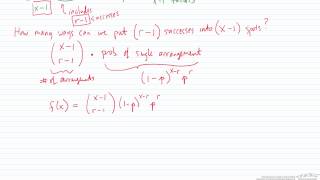 x-1 includes x-1 trials
r-1 successes
How many ways can we put (r-1) successes into (x-1) spots?
(x-1 r-1) · prob of single arrangement
# of arrangements (1-p)^{x-r} p^r
f(x) = (x-1 r-1) (1-p)^{x-r} p^r